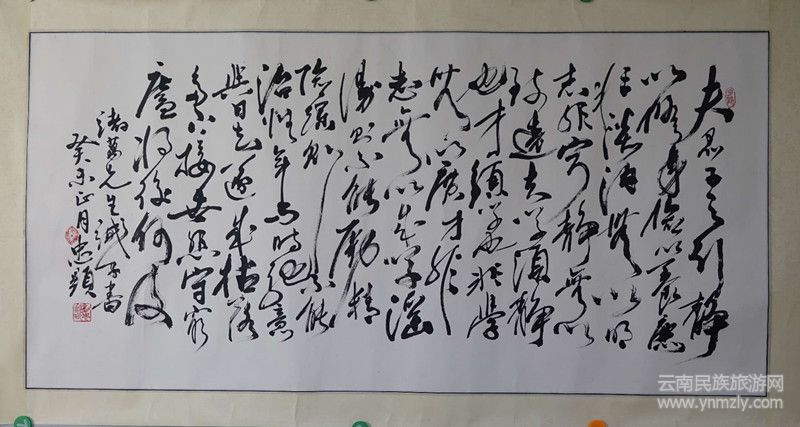 夫君子之行静
以修身俭以养德
非淡泊无以明
志非宁静无以
致远夫学须静
也才须学也非学
无以广才非
志无以成学淫
慢则不能励精
险躁则不能
治性年与时驰意
与日去遂成枯落
多不接世悲守穷
庐将复何及
诸葛先生诫子书
癸未正月
云南民族旅游网
www.ynmzly.com